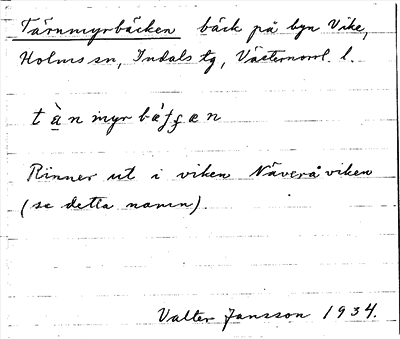 Tärnmyrbäcken bäck på byn Vike,
Holms sn, Indals tg, Västernorrl. l.
tà̱n myr bä̀ʃʃæn
Rinner ut i viken Näveråviken
(se detta namn).
Valter Jansson 1934.